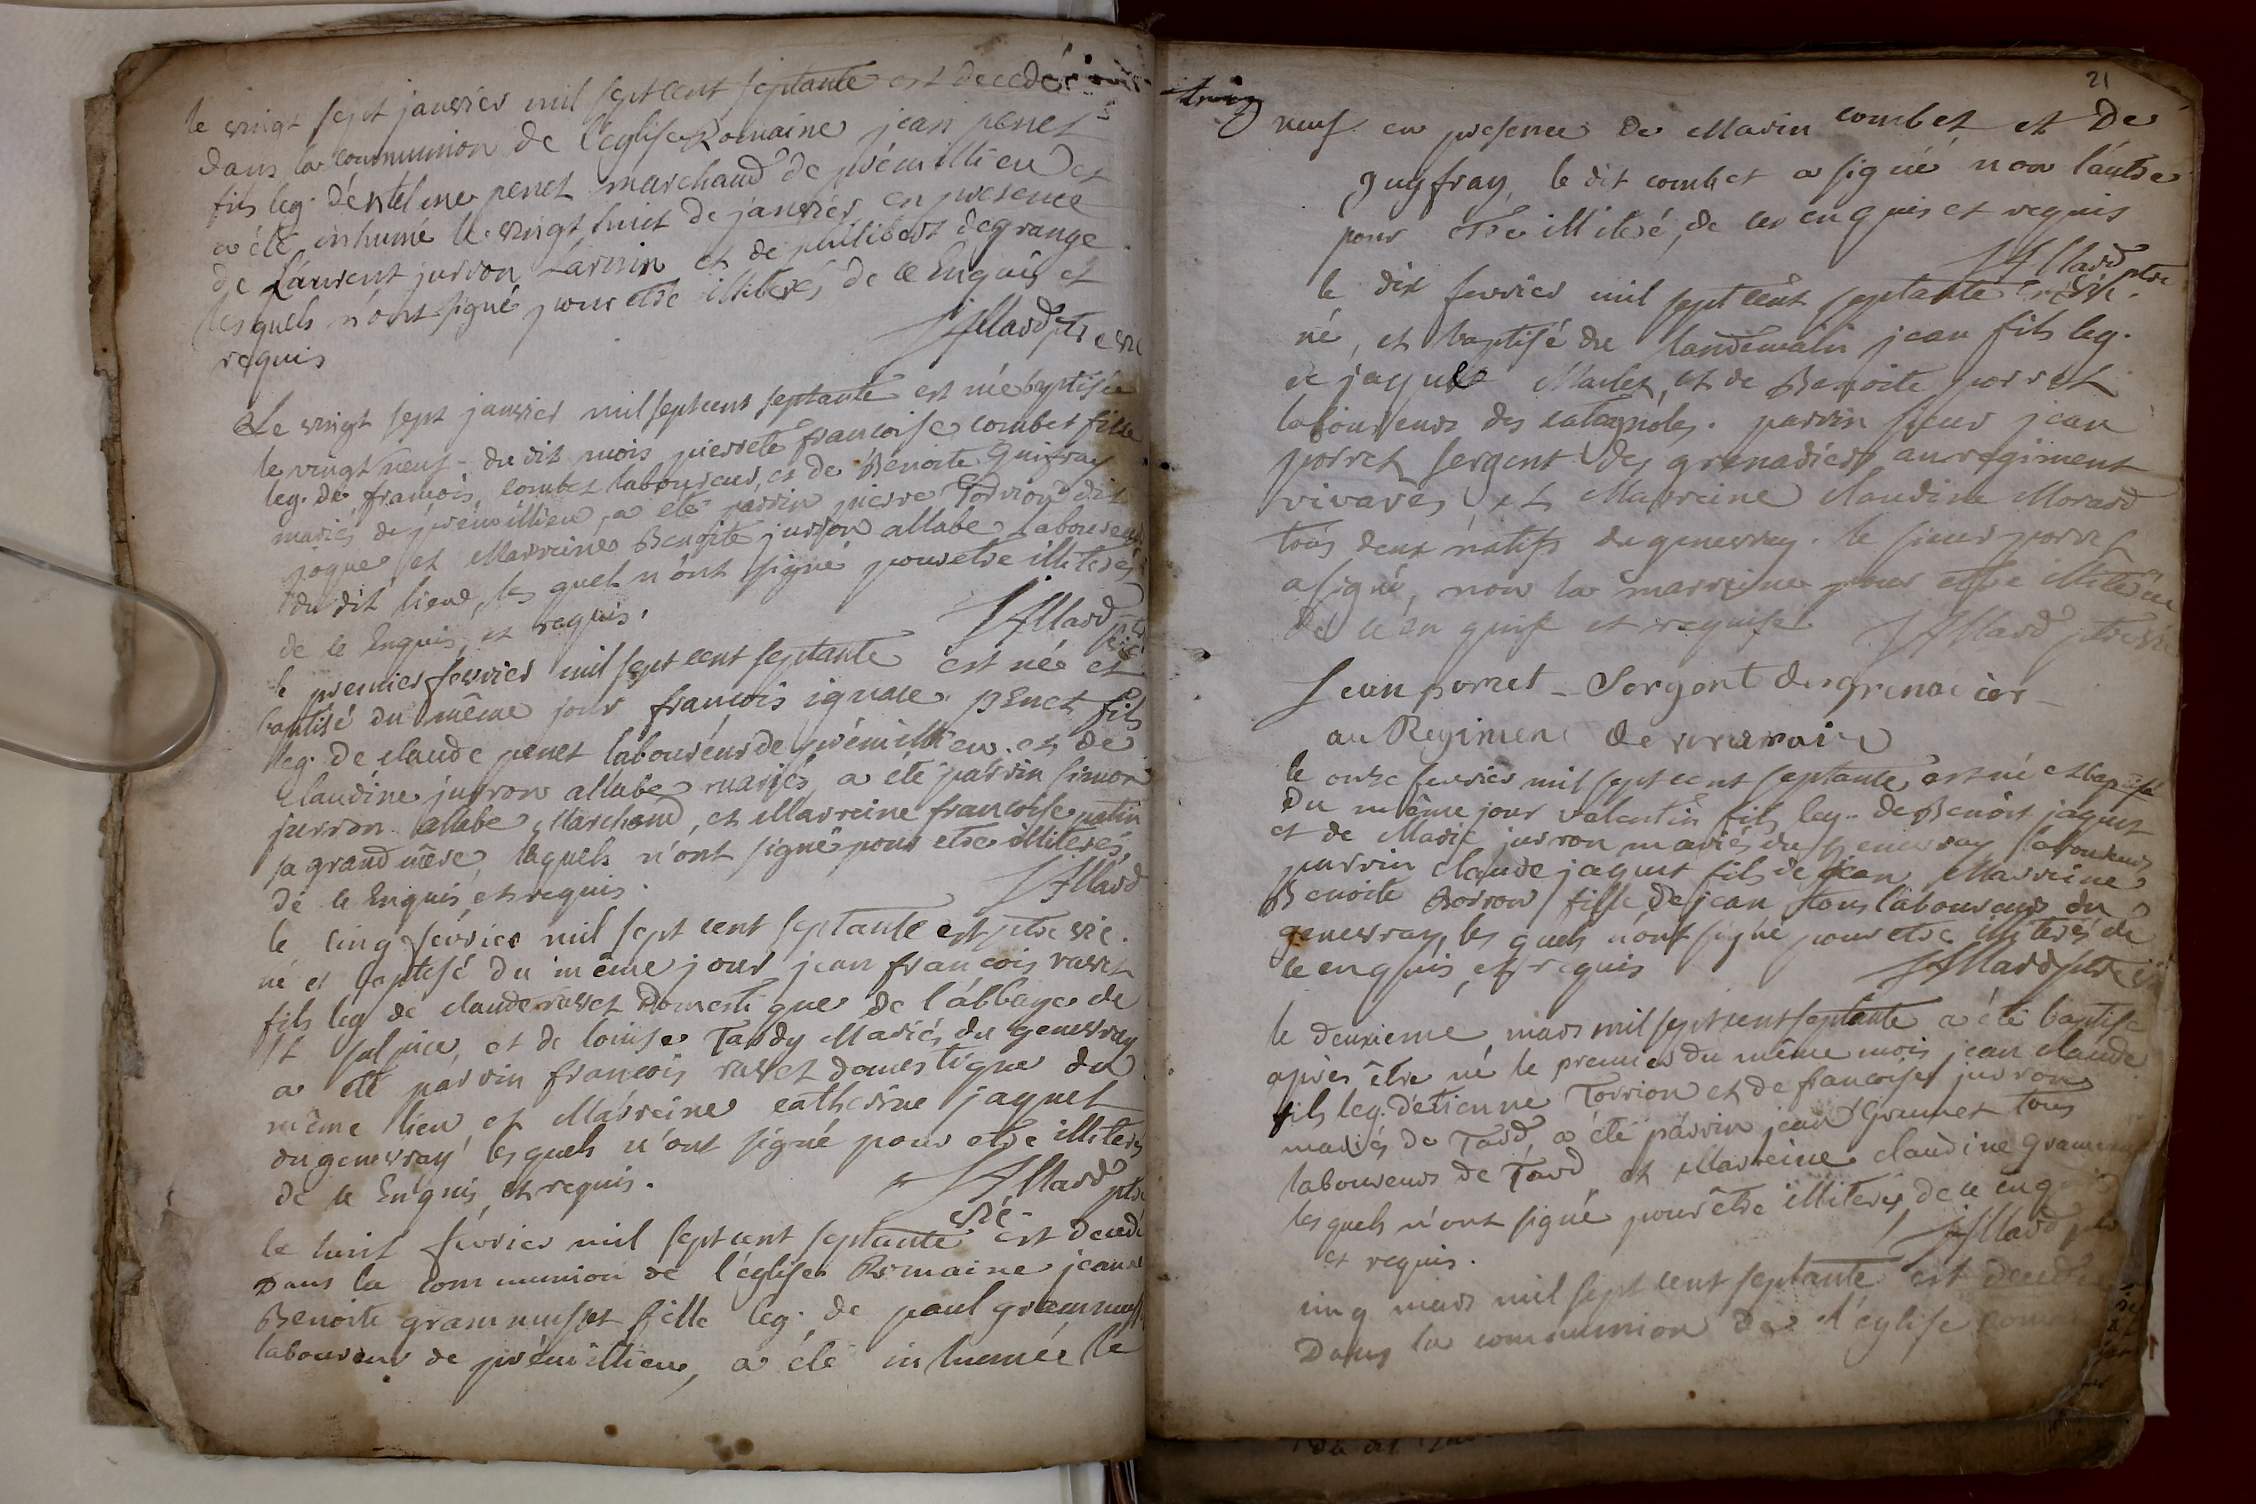 le vingt sept janvier mil sept cent septante est decedé
dans la communion de l'eglise Romaine jean penet
fils leg. d'entelme penet marchand de prémillieu et
a été inhumé le vingt huit de janvier en presence
de Laurent jurron Larmin et de philibert degrange
lesquels n'ont signé pour etre illiterés de ce Enquis et
requis
JAllard ptre vic
Le vingt sept janvier mil sept cent septante est née baptisée
le vingt neuf du dit mois pierrete francoise combet fille
leg. de francois combet laboureur, et de Benoite Guifray
mariés de prémillieu, a été parrin pierre Torrion dit
joque et Marreine Benoite jurron allabe laboureurs
du dit lieu, les quels n'ont signé pour etre illiterés
de ce Enquis, et requis.
JAllard ptre vic
le premier fevrier mil sept cent septante est né et
baptisé du même jour francois ignace penet fils
leg. de claude penet laboureur de prémillieu et de
Claudine jurron allabe mariés, a été parrin simon
jurron allabe Marchand, et Marreine francoise
sa grand mère, lequels n'ont signé pour etre illiterés,
de ce Enquis, et requis.
JAllard
le cinq fevrier mil sept cent septante est ptre vic.
né et baptisé du même jour jean francois ravet
fils leg de claude ravet domestique de l'abbaye de
St sulpice, et de louise Tardy Mariés du genevray
a été parrin francois ravet domestique du
même lieu et Marreine catherine jaquet
du genevray les quels n'ont signé pour etre illiterés
de ce Enquis, et requis.
JAllard ptre
vic.
le huit février mil sept cent septante est decedé
Dans la communion de l'église Romaine jeanne
Benoite grammusset fille leg. de paul grammusset
laboureur de prémillieu, a été inhumée le
21
neuf en presence de Marin combet et De
guyfray, le dit combet a signé non l'autre
pour etre illiteré, de ce enquis et requis
JAllard ptre
le dix fevrier mil sept cent septante
né, et baptisé du landemain jean fils leg.
de jaque Marlet, et de Benoite porret
laboureurs des catagnoles. parrin sieur jean
porret sergent des grenadiers au regiment
vivarés et Marreine claudine Morard
tous deux natifs du genevray. le sieur porret
a signé, non la marreine pour etre illiterée
de ce en quise et requise.
JAllard ptre vic
Jean porret - Sergent des grenadier
au Regiment de vivarais
le onze fevrier mil sept cent septante est né et baptisé
Du même jour valentin fils leg. de Benoit jaquet
et de Marie jurron mariés du genevray laboureurs
parrin claude jaquet fils de jean Marreine
Benoite Borron fille de jean tous laboureurs du
genevray, les quels n'ont signé pour etre illiterés de
ce enquis, et requis
JAllard ptre vic
le deuxieme mars mil sept cent septante a été baptisé
après être né le premier du même mois jean claude
fils leg. d'etienne Torrion et de francoise jurron
mariés de Tard, a été parrin jean Grumet tous
laboureurs de Tard et Marreine claudine
les quels n'ont signé pour être illiterés de ce enquis
et requis.
JAllard ptre
cinq mars mil sept cent septante est decedé
Dans la communion de l'église